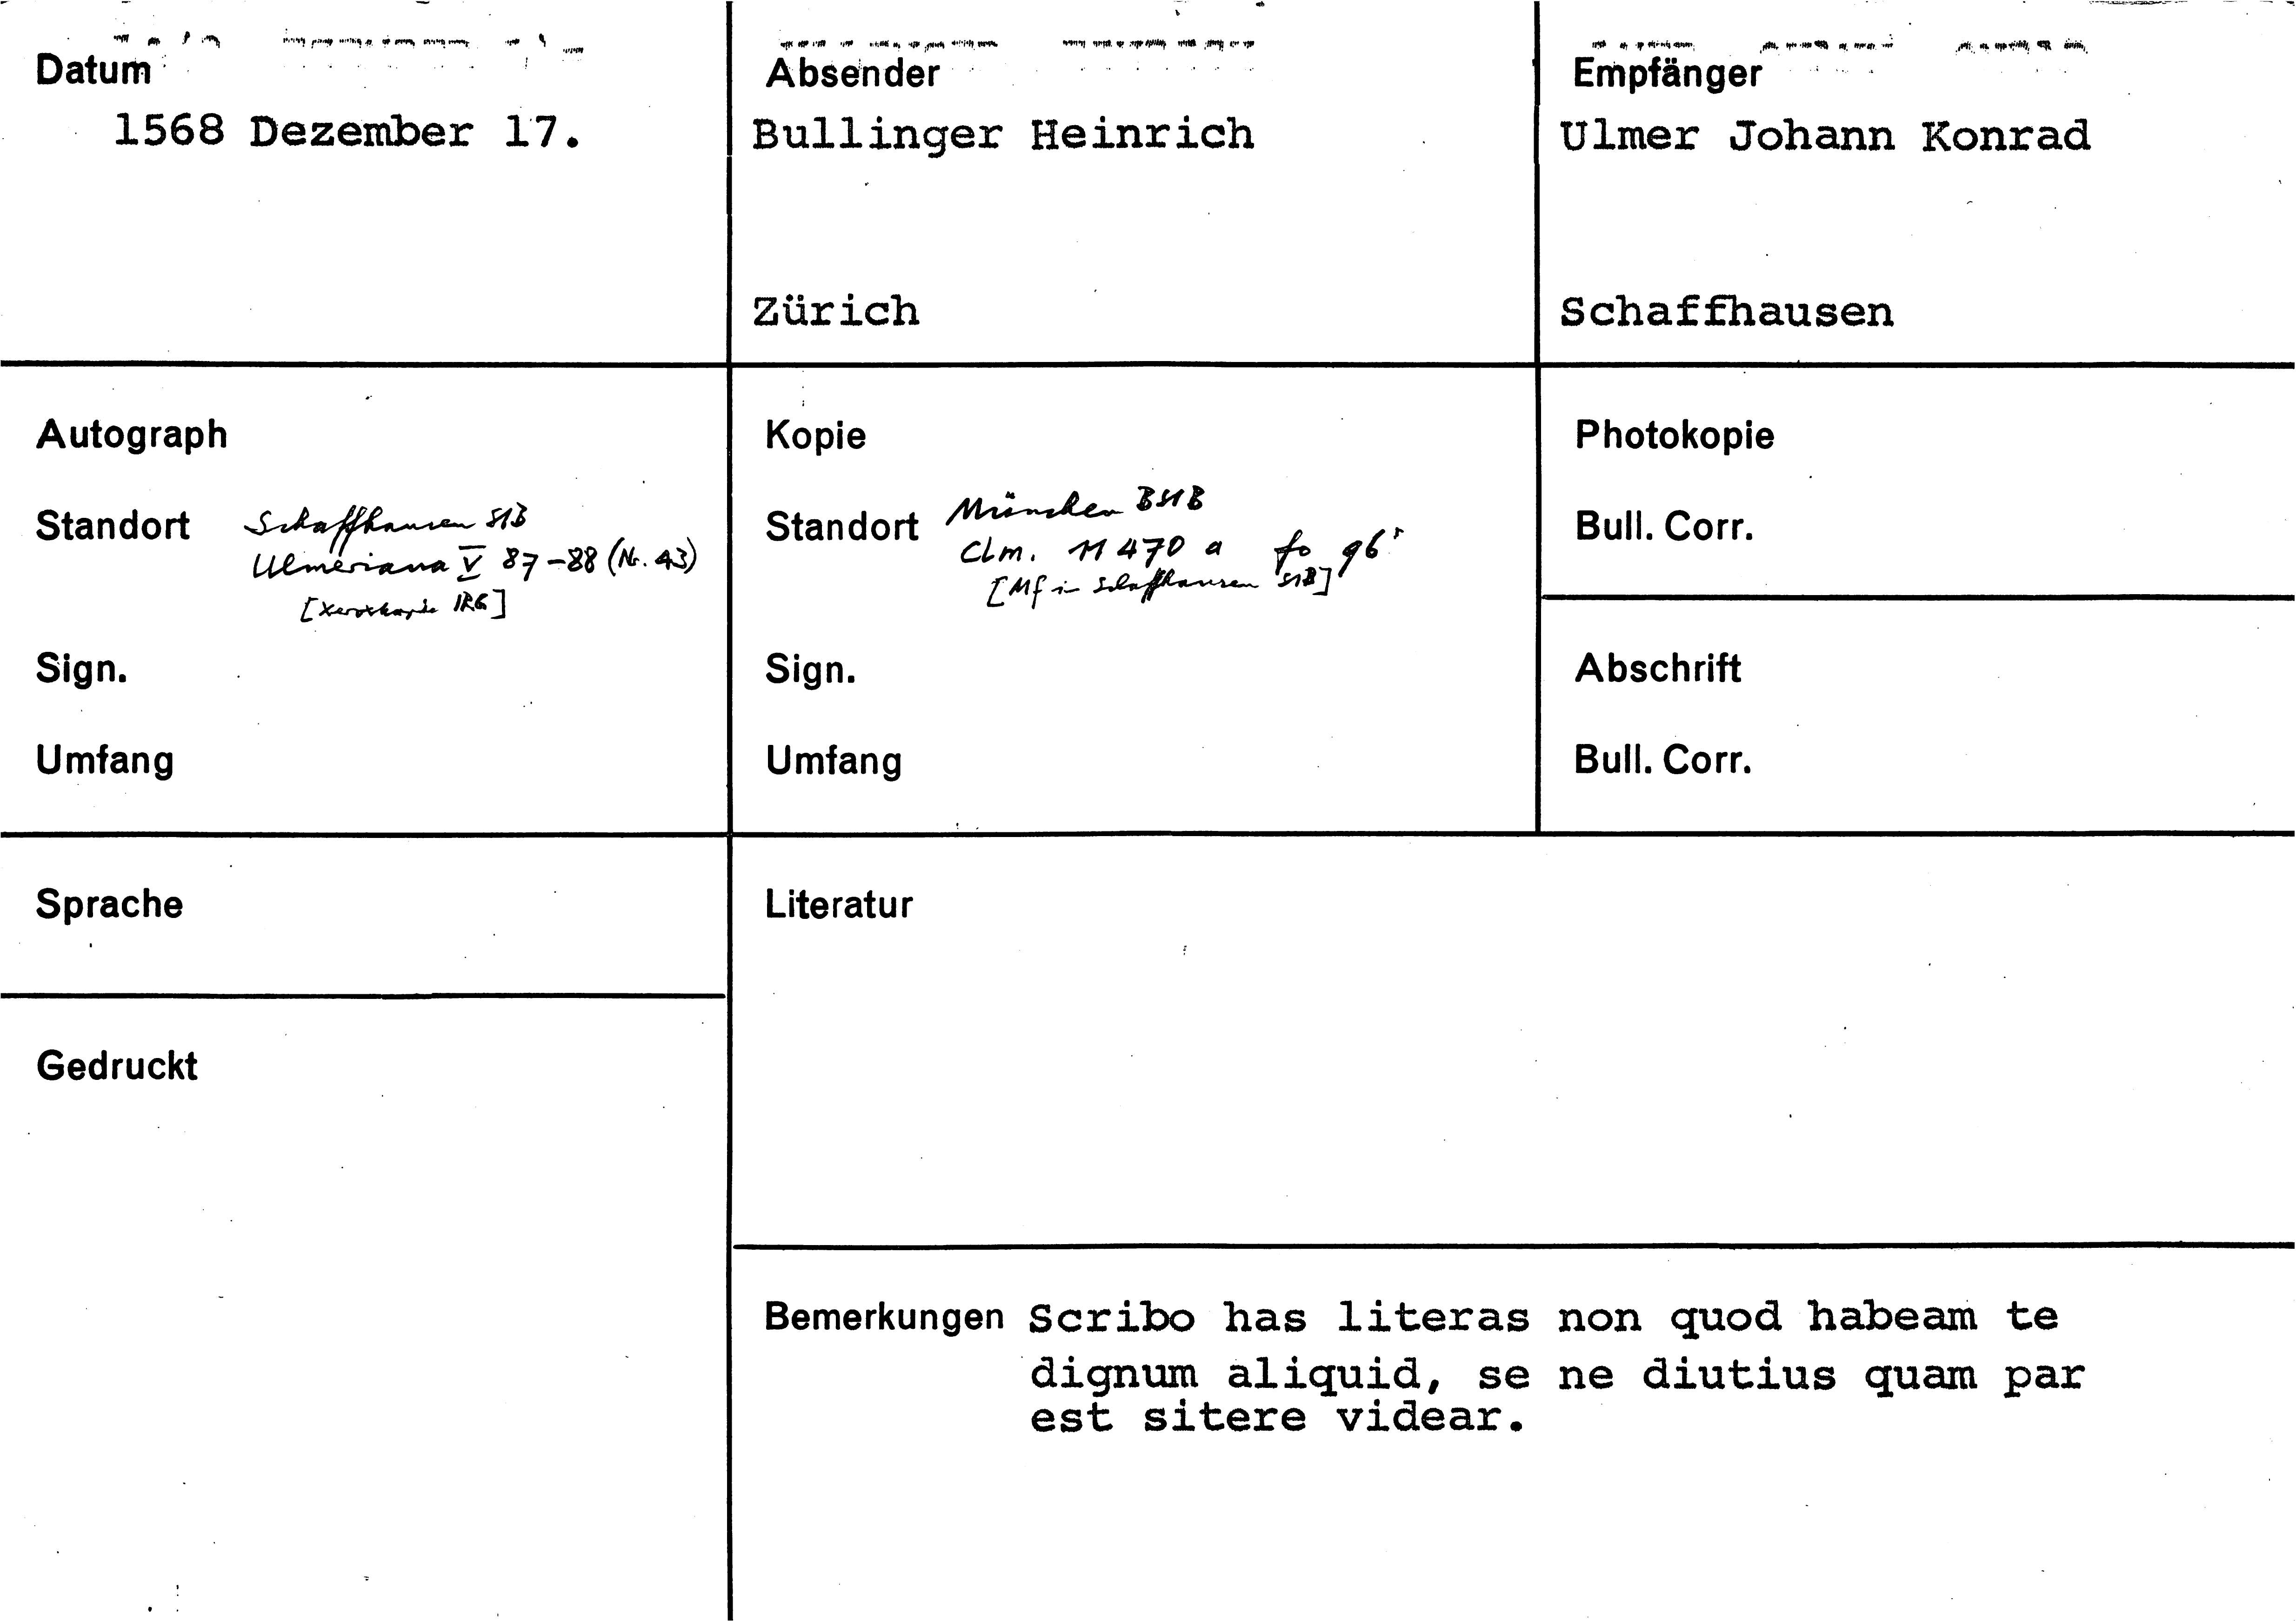 Datum
1568 Dezember 17.
Absender
Bullinger Heinrich
Zürich
Empfänger
Ulmer Johann Konrad
Schaffhausen
Autograph
Standort Schaffhausen StB
Ulmeriana V 87-88 (Nr. 43)
[Xerokopie IRG]
Sign.
Umfang
Kopie
Standort München BStB
Clm. 11470 a fo 96r
[Mf in Schaffhausen StB]
Sign.
Umfang
Photokopie
Bull. Corr.
Abschrift
Bull. Corr.
Sprache
Gedruckt
Literatur
Bemerkungen Scribo has literas non quod habeam te
dignum aliquid, se ne diutius quam par
est sitere videar.